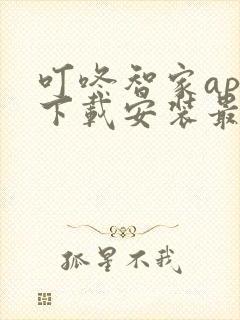 叮咚智家ap
下载安装最
孤星不我